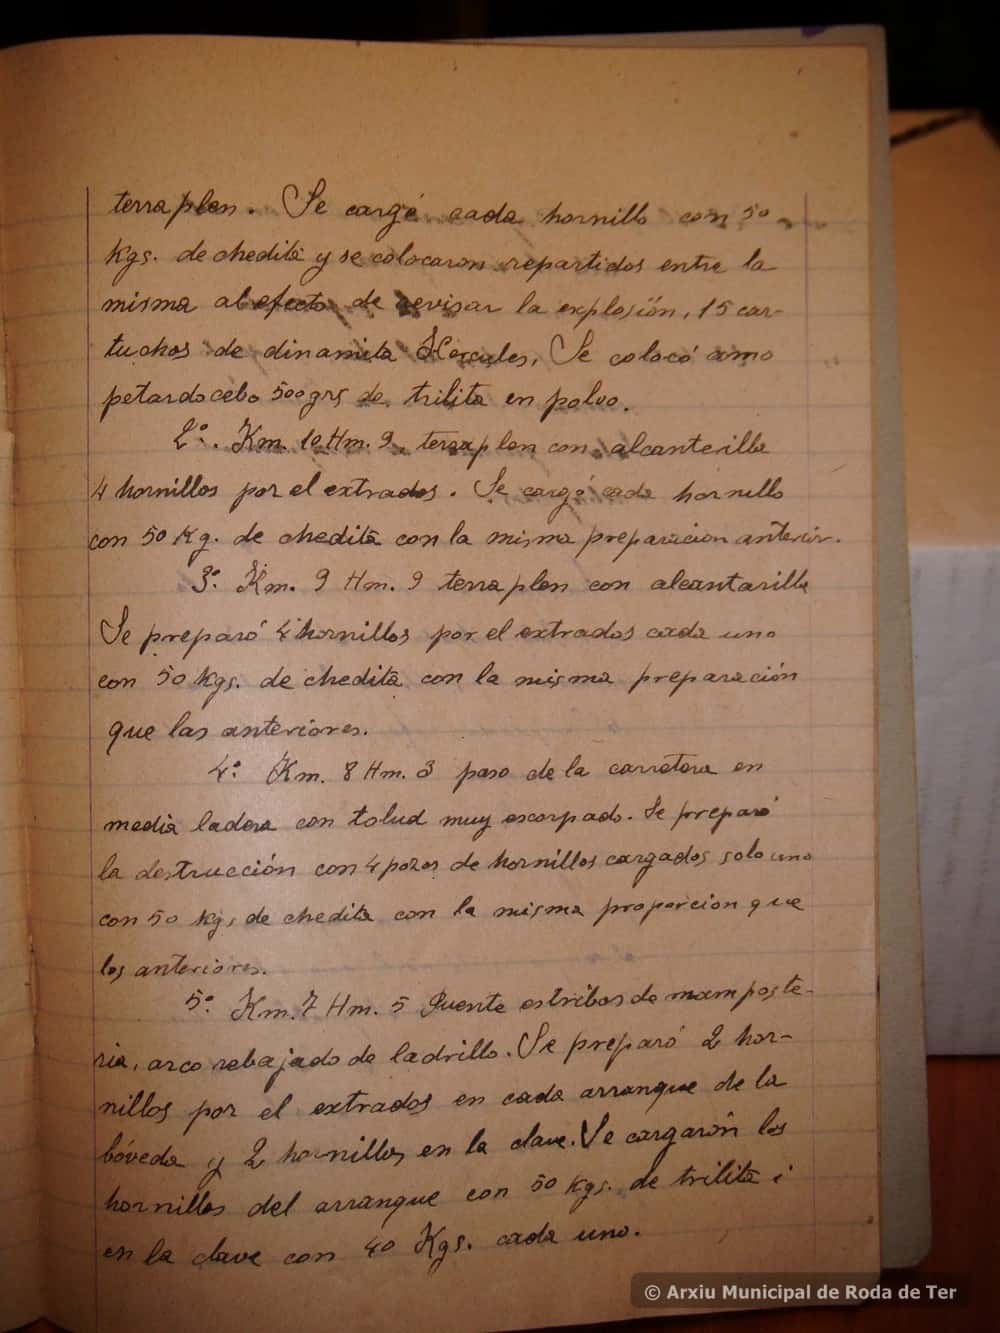 terraplen. Se cargó cada hornillo con 50
Kgs. de chedita y se colocaron repartidos entre la
misma al efecto de revisar la explosión, 15 car-
tuchos de dinamita Hercules, Se colocó como
petardo cebo 500 grs de trilita en polvo.
2º. Km. 10 Hm. 9. terraplen con alcanterilla
4 hornillos por el extrados. Se cargó cada hornillo
con 50 Kg. de chedita con la misma preparacion anterior.
3º. Km. 9 Hm. 9 terraplen con alcantarilla
Se preparó 4 hornillos por el extrados cada uno
con 50 Kgs. de chedita con la misma preparación
que las anteriores.
4º Km. 8 Hm. 3 paso de la carretera en
media ladera con talud muy escarpado. Se preparó
la destrucción con 4 pozos de hornillos cargados, solo uno
con 50 Kgs de chedita con la misma proporcion que
los anteriores.
5º Km. 7 Hm. 5 Puente estribos de mamposte-
ria, arco rebajado de ladrillo. Se preparó 2 hor-
nillos por el extrados en cada arranque de la
bóveda y 2 hornillos en la clave. Se cargarón los
hornillos del arranque con 50 Kgs. de trilita i
en la clave con 40 Kgs. cada uno.
© Arxiu Municipal de Roda de Ter